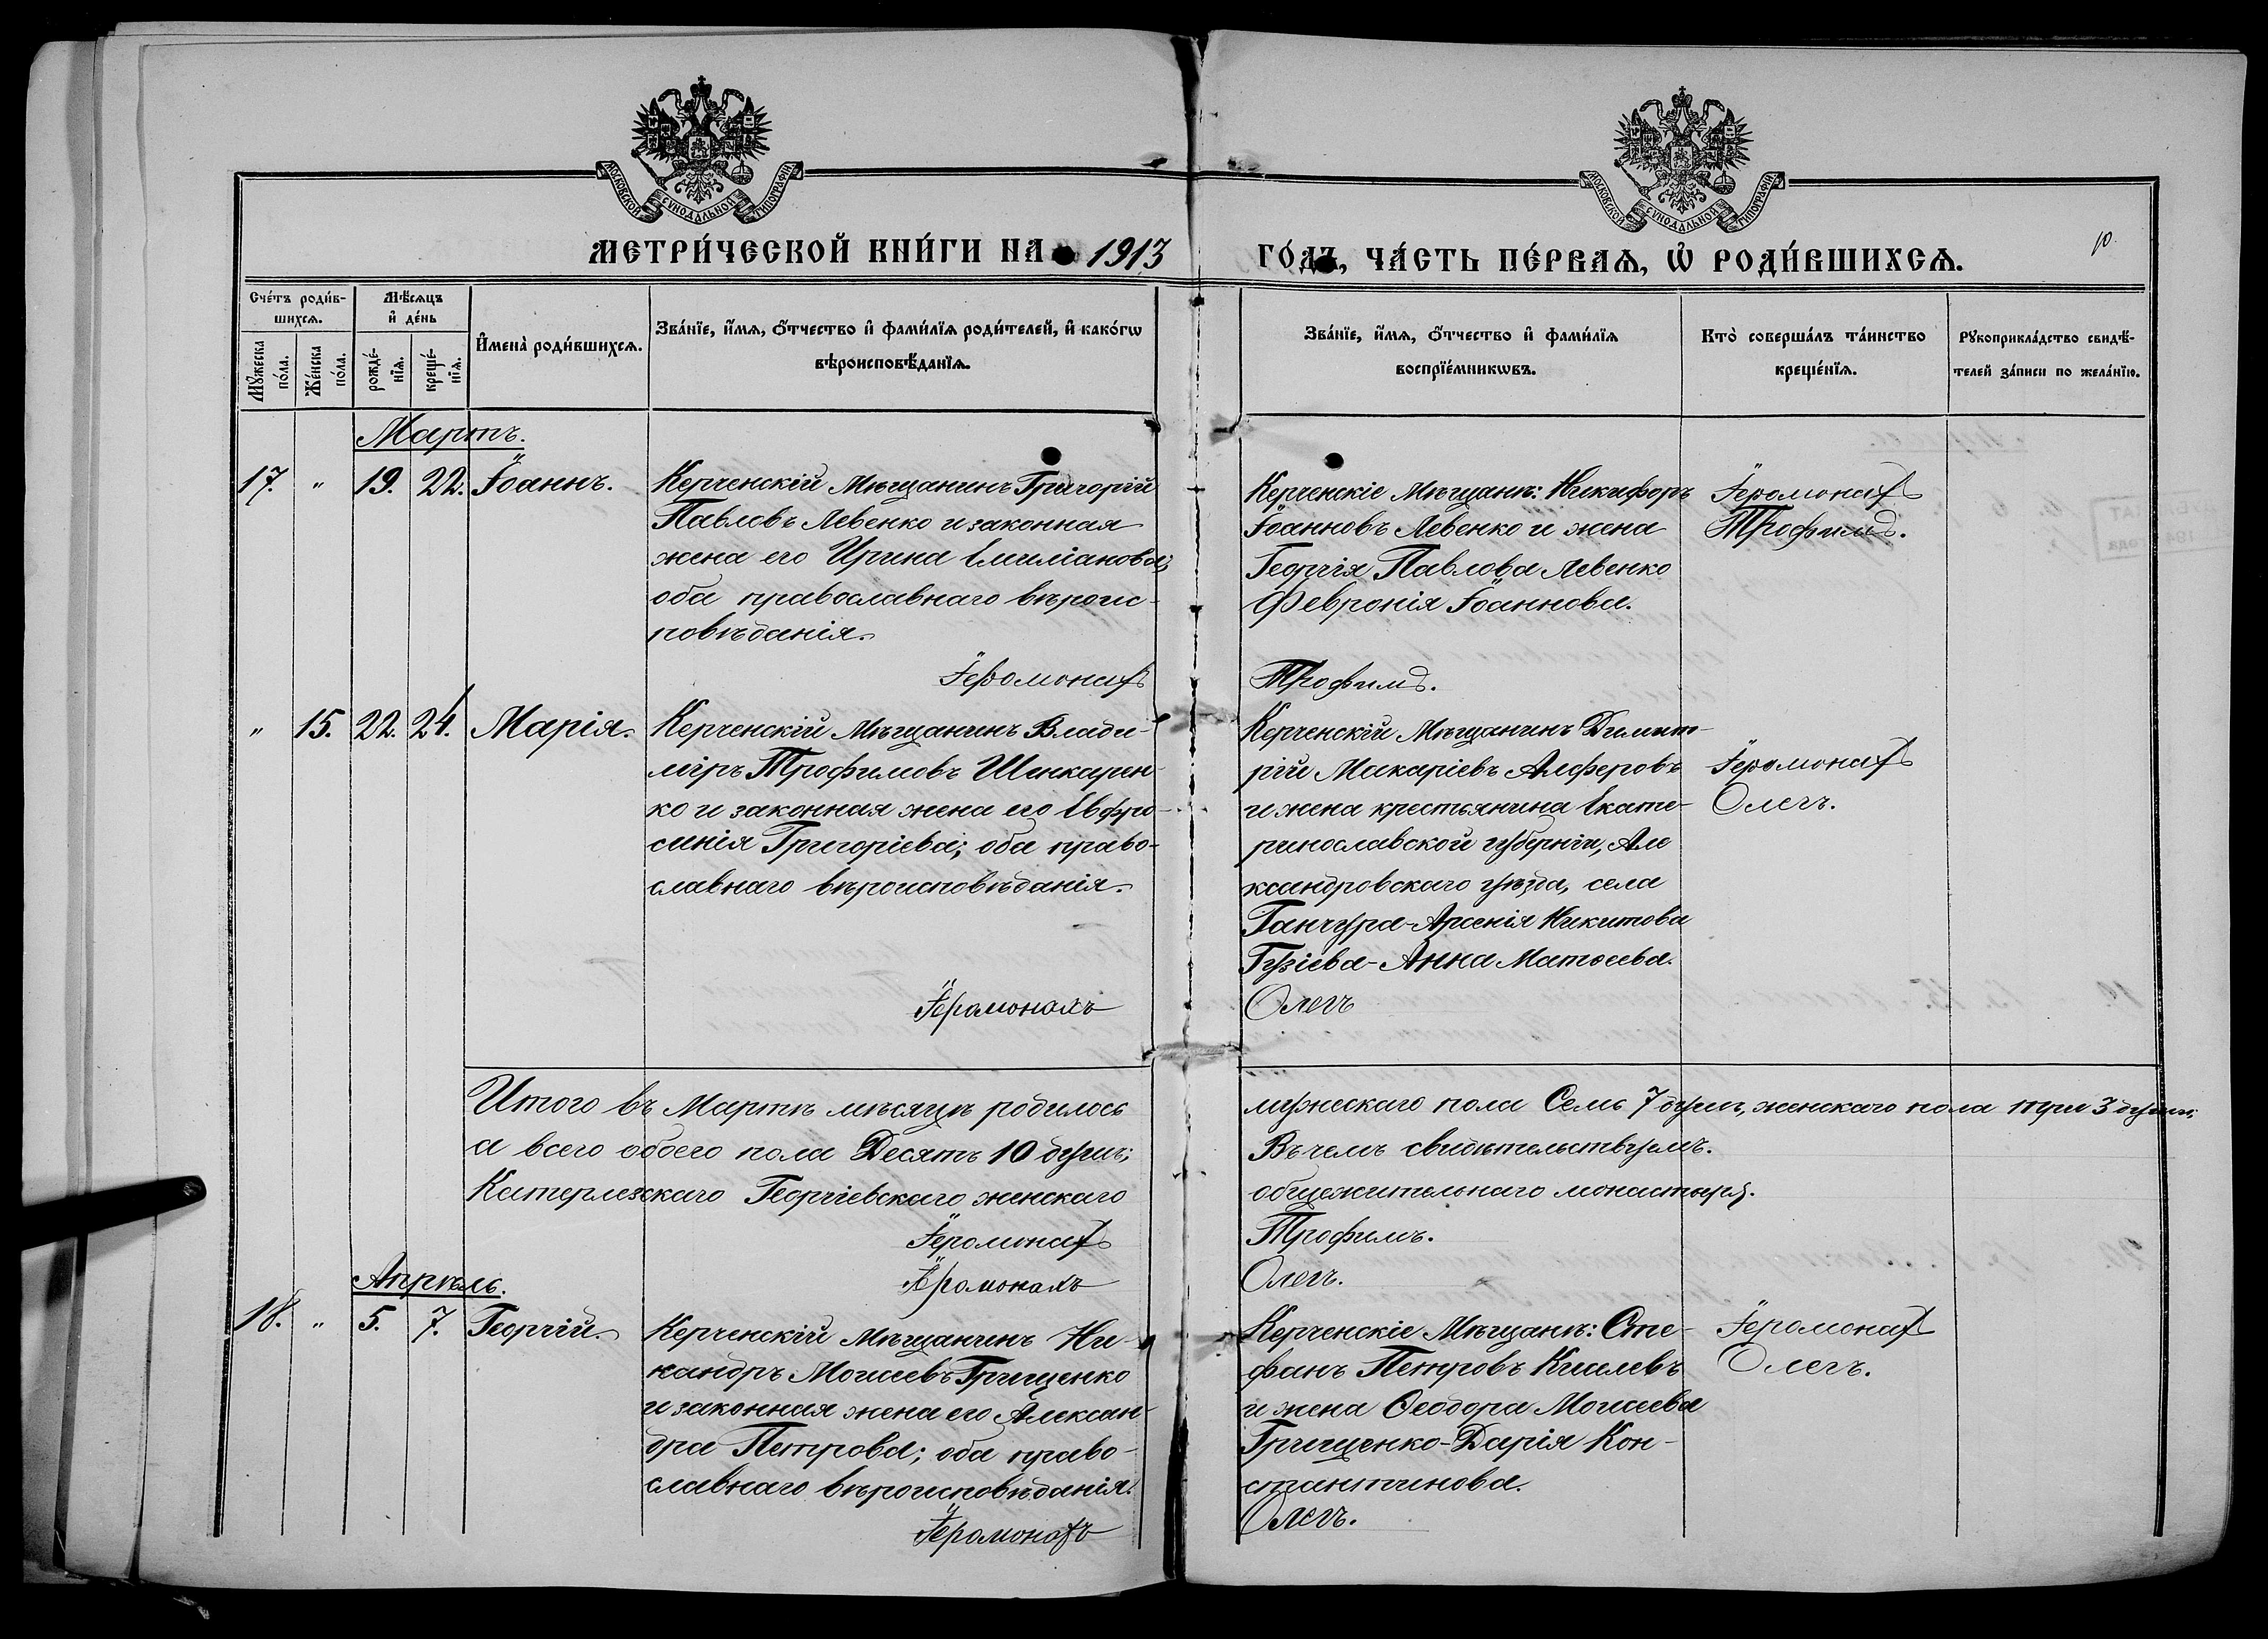 МОСКОВСКОЙ СѴНОДАЛЬНОЙ ТИПОГРАФІИ
МОСКОВСКОЙ СѴНОДАЛЬНОЙ ТИПОГРАФІИ
МЕТРИ́ЧЕСКОЙ КНИ́ГИ НА 1913
ГО́ДЪ, ЧА́СТЬ ПЕ́РВАѦ, Ѡ҆ РОДИ́ВШИХСѦ.
10.
Сче́тъ роди́в-
шихсѧ.
Мꙋ́жеска
по́ла.
Же́нска
по́ла.
Мѣ́сѧцъ
и҆ де́нь
рожде́-
нїѧ.
креще́-
нїѧ.
И҆мена̀ роди́вшихсѧ.
Зва́нїе, и҆́мѧ, ѻ҆́тчество и҆ фами́лїѧ роди́телей, и҆ како́гѡ
вѣроисповѣ́данїѧ.
Зва́нїе, и҆́мѧ, ѻ҆́тчество и҆ фами́лїѧ
воспрїе́мникѡвъ.
Кто̀ соверша́лъ та́инство
креще́нїѧ.
Рꙋкоприкла́дство свидѣ́-
телей за́писи по жела́нїю.
Мартъ.
17. " 19. 22. Іоаннъ.
Керченскій Мѣщанинъ Григорій
Павловъ Левенко и законная
жена его Ирина Емиліанова;
оба православнаго вѣроис-
повѣданія.
Іеромонахъ
Керченскіе Мѣщане: Никифоръ
Іоанновъ Левенко и жена
Георгія Павлова Левенко
Февронія Іоаннова.
Трофимъ.
Іеромонахъ
Трофимъ.
" 15. 22. 24. Марія.
Керченскій Мѣщанинъ Влади-
міръ Трофимовъ Шинкарен-
ко и законная жена его Евфро-
синія Григоріева; оба право-
славнаго вѣроисповѣданія.
Іеромонахъ
Керченскій Мѣщанинъ Димит-
рій Макаріевъ Алферовъ
и жена крестьянина Екате-
ринославской губерніи, Але
ксандровскаго уѣзда, села
Ганчура-Арсенія Никитова
Гузіева-Анна Матѳеева.
Олегъ
Іеромонахъ
Олегъ.
Итого въ Мартѣ мѣсяцѣ родилось
а всего обоего пола Десять 10 душъ;
Катерлезскаго Георгіевскаго женскаго
Іеромонахъ
Іеромонахъ
мужескаго пола Семь 7 душъ, женскаго пола три 3 души;
Въ чемъ свидѣтельствуемъ.
общежительнаго монастыря.
Трофимъ.
Олегъ.
Апрѣль.
18. " 5. 7. Георгій.
Керченскій Мѣщанинъ Ни-
кандръ Моисеевъ Грищенко
и законная жена его Алексан-
дра Петрова; оба право-
славнаго вѣроисповѣданія.
Іеромонахъ
Керченскіе Мѣщане: Сте-
фанъ Петровъ Киселевъ
и жена Ѳеодора Моисеева
Грищенко-Дарія Кон-
стантинова.
Олегъ.
Іеромонахъ
Олегъ.